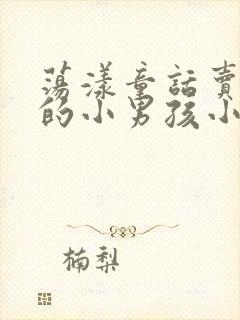 荡漾童話賣
的小男孩小
楠梨